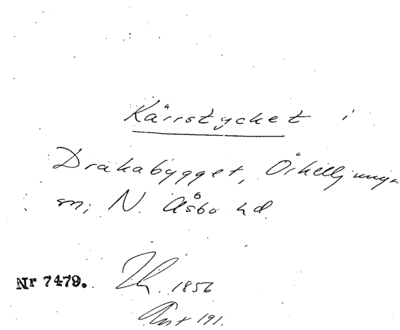 Kärrstycket i
Drakabygget, Örkelljunga
sn; N. Åsbo hd
Nr 7479. 1856
191.